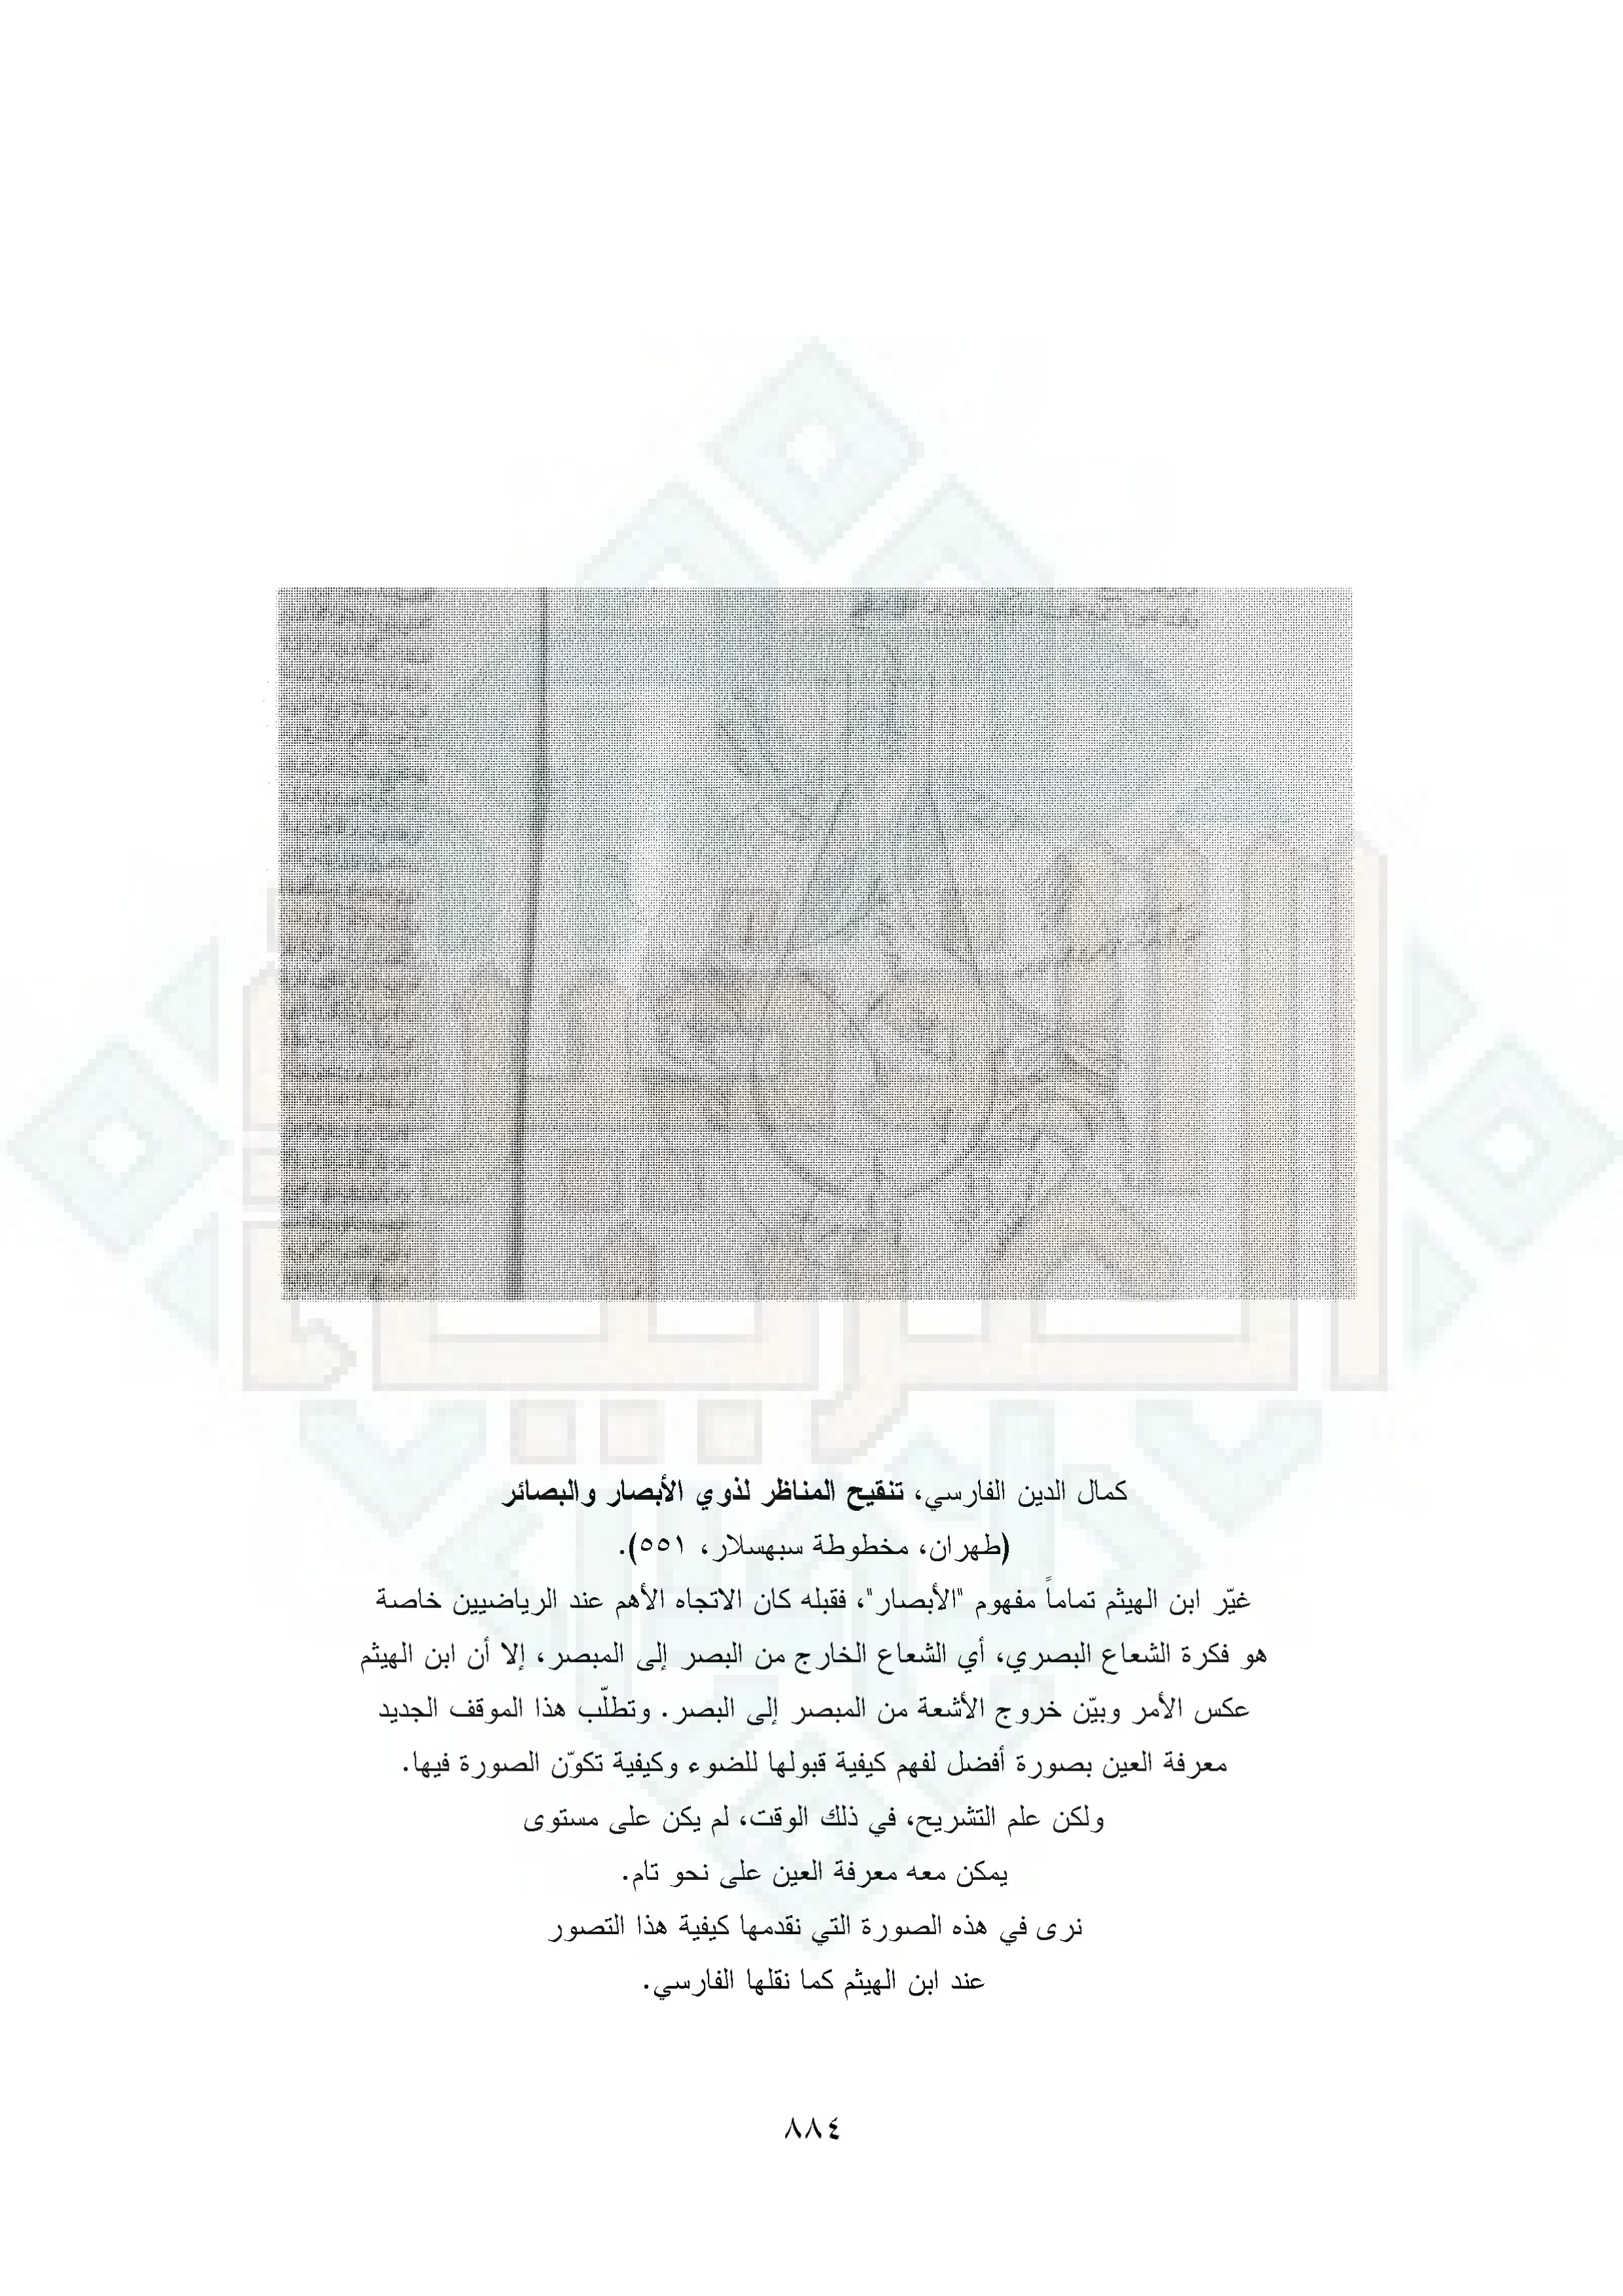 كمال الدين الفارسي، تنقيح المناظر لذوي الأبصار والبصائر
(طهران، مخطوطة سبهسلار، ٥٥١).
غيّر ابن الهيثم تماماً مفهوم "الأبصار"، فقبله كان الاتجاه الأهم عند الرياضيين خاصة
هو فكرة الشعاع البصري، أي الشعاع الخارج من البصر إلى المبصر، إلا أن ابن الهيثم
عكس الأمر وبيّن خروج الأشعة من المبصر إلى البصر. وتطلّب هذا الموقف الجديد
معرفة العين بصورة أفضل لفهم كيفية قبولها للضوء وكيفية تكوّن الصورة فيها.
ولكن علم التشريح، في ذلك الوقت، لم يكن على مستوى
يمكن معه معرفة العين على نحو تام.
نرى في هذه الصورة التي نقدمها كيفية هذا التصور
عند ابن الهيثم كما نقلها الفارسي.
٨٨٤